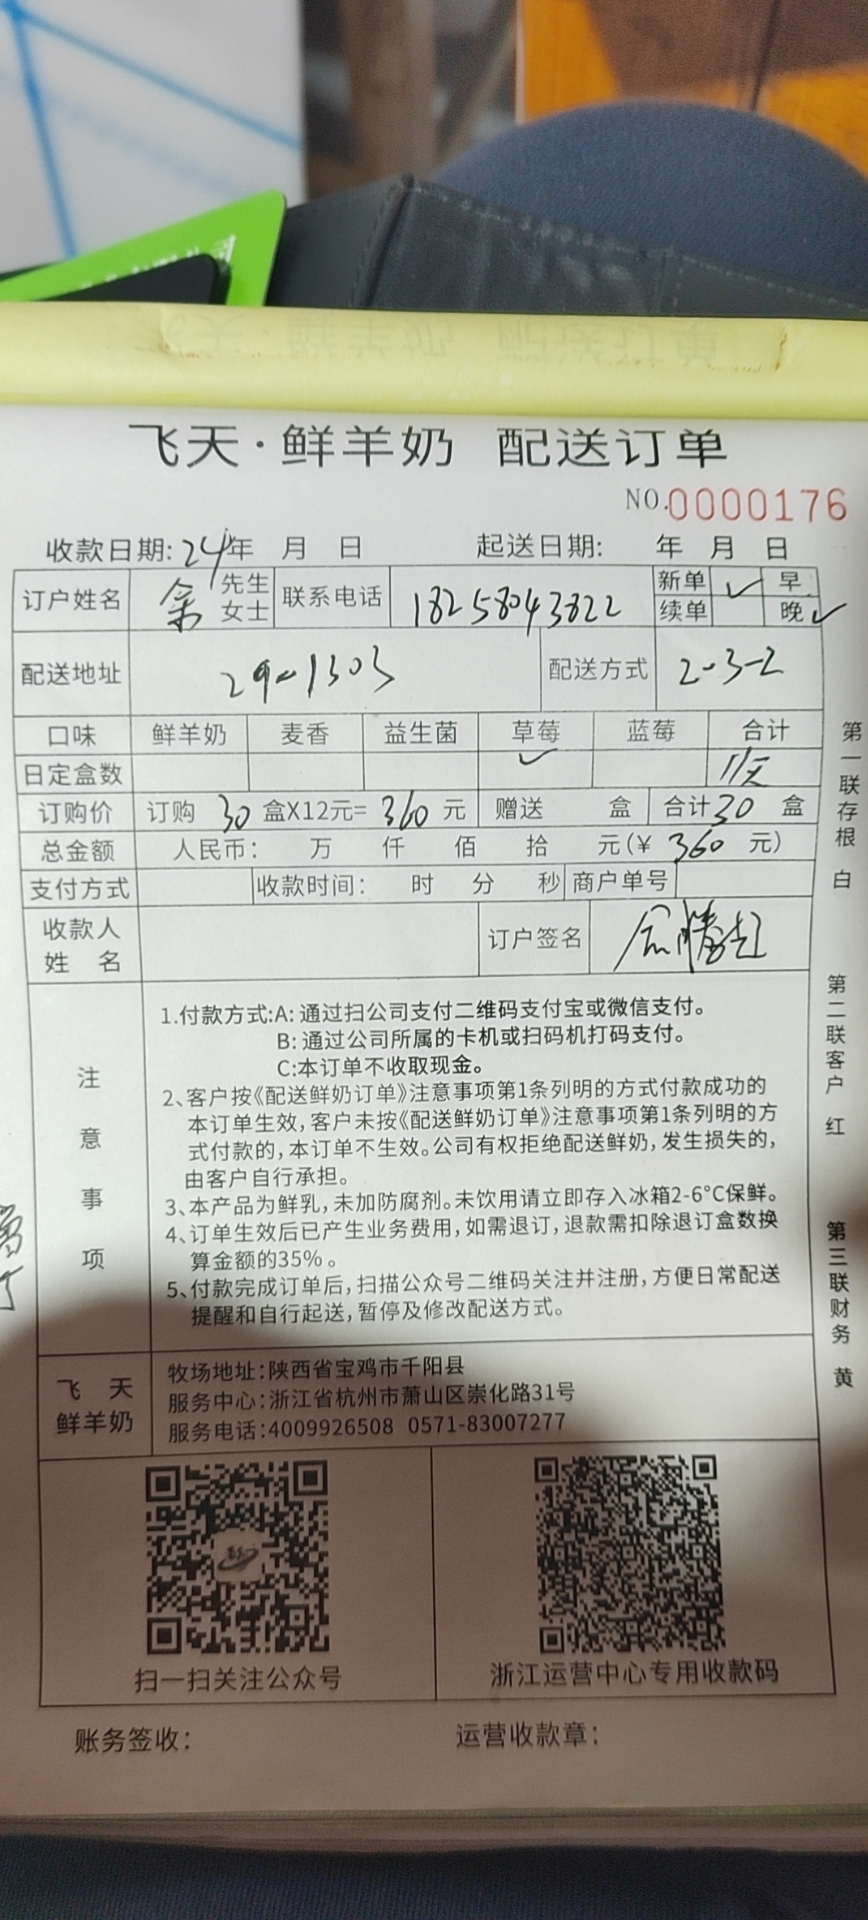 飞天·鲜羊奶 配送订单
NO.0000176
收款日期: 24年 月 日 起送日期: 年 月 日
订户姓名 余 先生 女士 联系电话 18258043822 新单 ✓ 早
续单 晚 ✓
配送地址 29-1303 配送方式 2-3-2
口味 鲜羊奶 麦香 益生菌 草莓 蓝莓 合计
日定盒数 ✓ 1/天
订购价 订购 30 盒X12元= 360 元 赠送 盒 合计 30 盒
总金额 人民币: 万 仟 佰 拾 元(¥ 360 元)
支付方式 收款时间: 时 分 秒 商户单号
收款人
姓 名
订户签名
注意事项
1.付款方式:A: 通过扫公司支付二维码支付宝或微信支付。
B: 通过公司所属的卡机或扫码机打码支付。
C:本订单不收取现金。
2、客户按《配送鲜奶订单》注意事项第1条列明的方式付款成功的
本订单生效,客户未按《配送鲜奶订单》注意事项第1条列明的方
式付款的,本订单不生效。公司有权拒绝配送鲜奶,发生损失的,
由客户自行承担。
3、本产品为鲜乳,未加防腐剂。未饮用请立即存入冰箱2-6°C保鲜。
4、订单生效后已产生业务费用,如需退订,退款需扣除退订盒数换
算金额的35%。
5、付款完成订单后,扫描公众号二维码关注并注册,方便日常配送
提醒和自行起送,暂停及修改配送方式。
飞 天
鲜羊奶
牧场地址:陕西省宝鸡市千阳县
服务中心:浙江省杭州市萧山区崇化路31号
服务电话:4009926508 0571-83007277
扫一扫关注公众号 浙江运营中心专用收款码
账务签收: 运营收款章:
第一联存根 白
第二联客户 红
第三联财务 黄